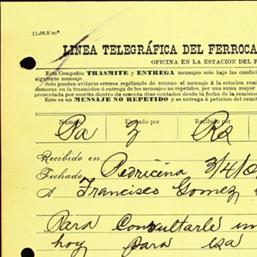 LINEA TELEGRÁFICA DEL FERROCA
OFICINA EN LA ESTACION DEL F
Esta Compañia TRASMITE y ENTREGA mensajes solo bajo las condic
siguiente mensaje.
Solo pueden evitarse errores repitiendo de retorno el mensaje á la estacion rem
demoras en la trasmisión ó entrega de los mensajes no repetidos, por una suma mayor
presentada por escrito dentro de sesenta dias contados desde la fecha de la remisión
Este es un MENSAJE NO REPETIDO y se entrega á peticion del remit
Pa Z Ro
Recibido en Pedriceña 3/4/0
Fechado
A Francisco Gomez
Para Consultarle un
hoy para esa